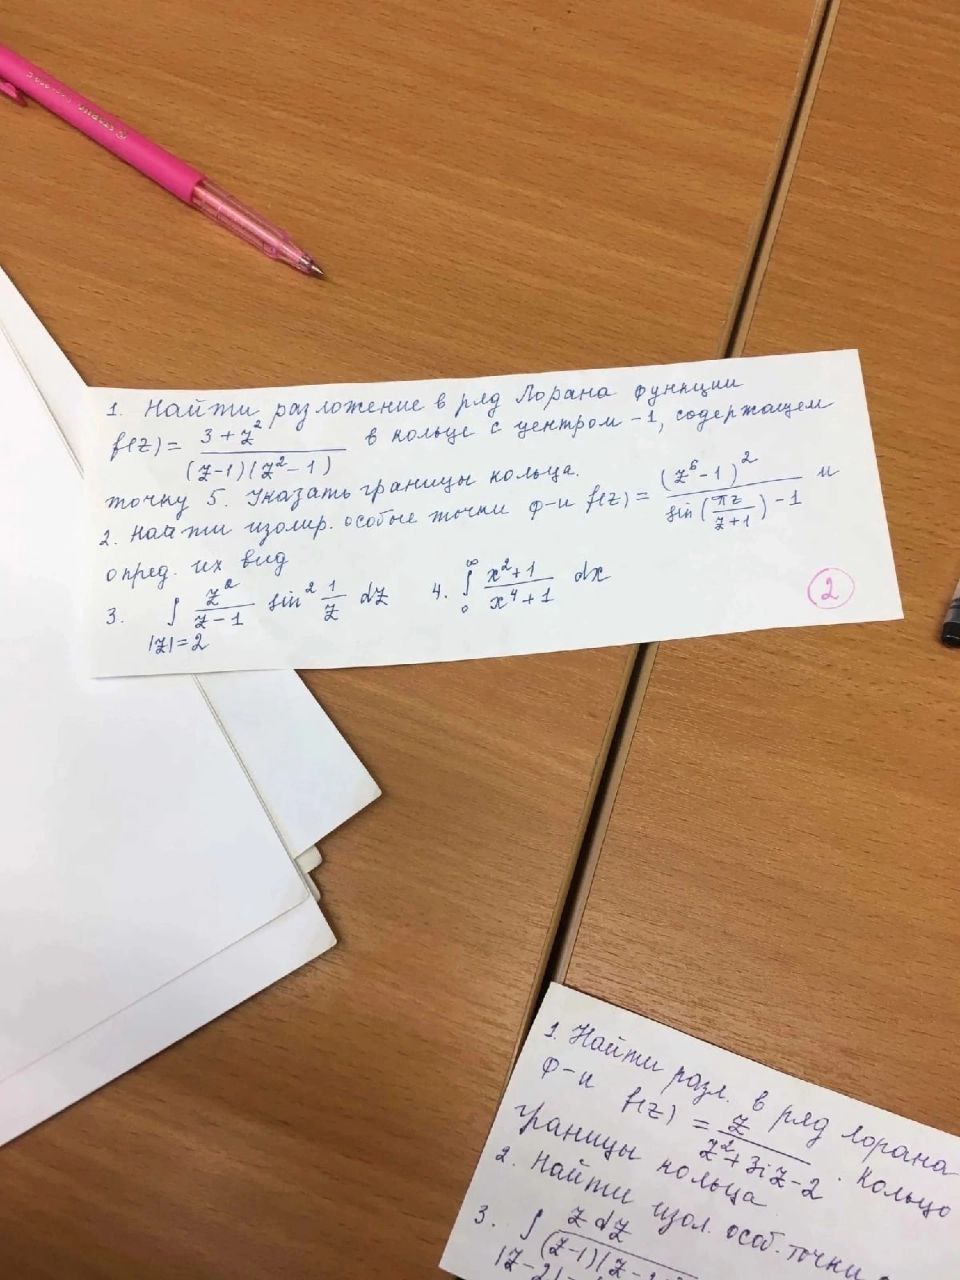 1. Найти разложение в ряд Лорана функции
f(z) = \frac{3+z^2}{(z-1)(z^2-1)} в кольце с центром -1, содержащем
точку 5. Указать границы кольца.
2. Найти изолир. особые точки ф-и f(z) = \frac{(z^6-1)^2}{sin(\frac{πz}{z+1})-1} и
опред. их вид
3. ∫_{|z|=2} \frac{z^2}{z-1} sin^2 \frac{1}{z} dz 4. ∫_0^∞ \frac{x^2+1}{x^4+1} dx
2
1. Найти разл. в ряд Лорана
ф-и f(z) = \frac{z}{z^2+3iz-2}. Кольцо
границы кольца
2. Найти изол. особ. точки
3. ∫ z dz
(z-1)(z-
|z-2|